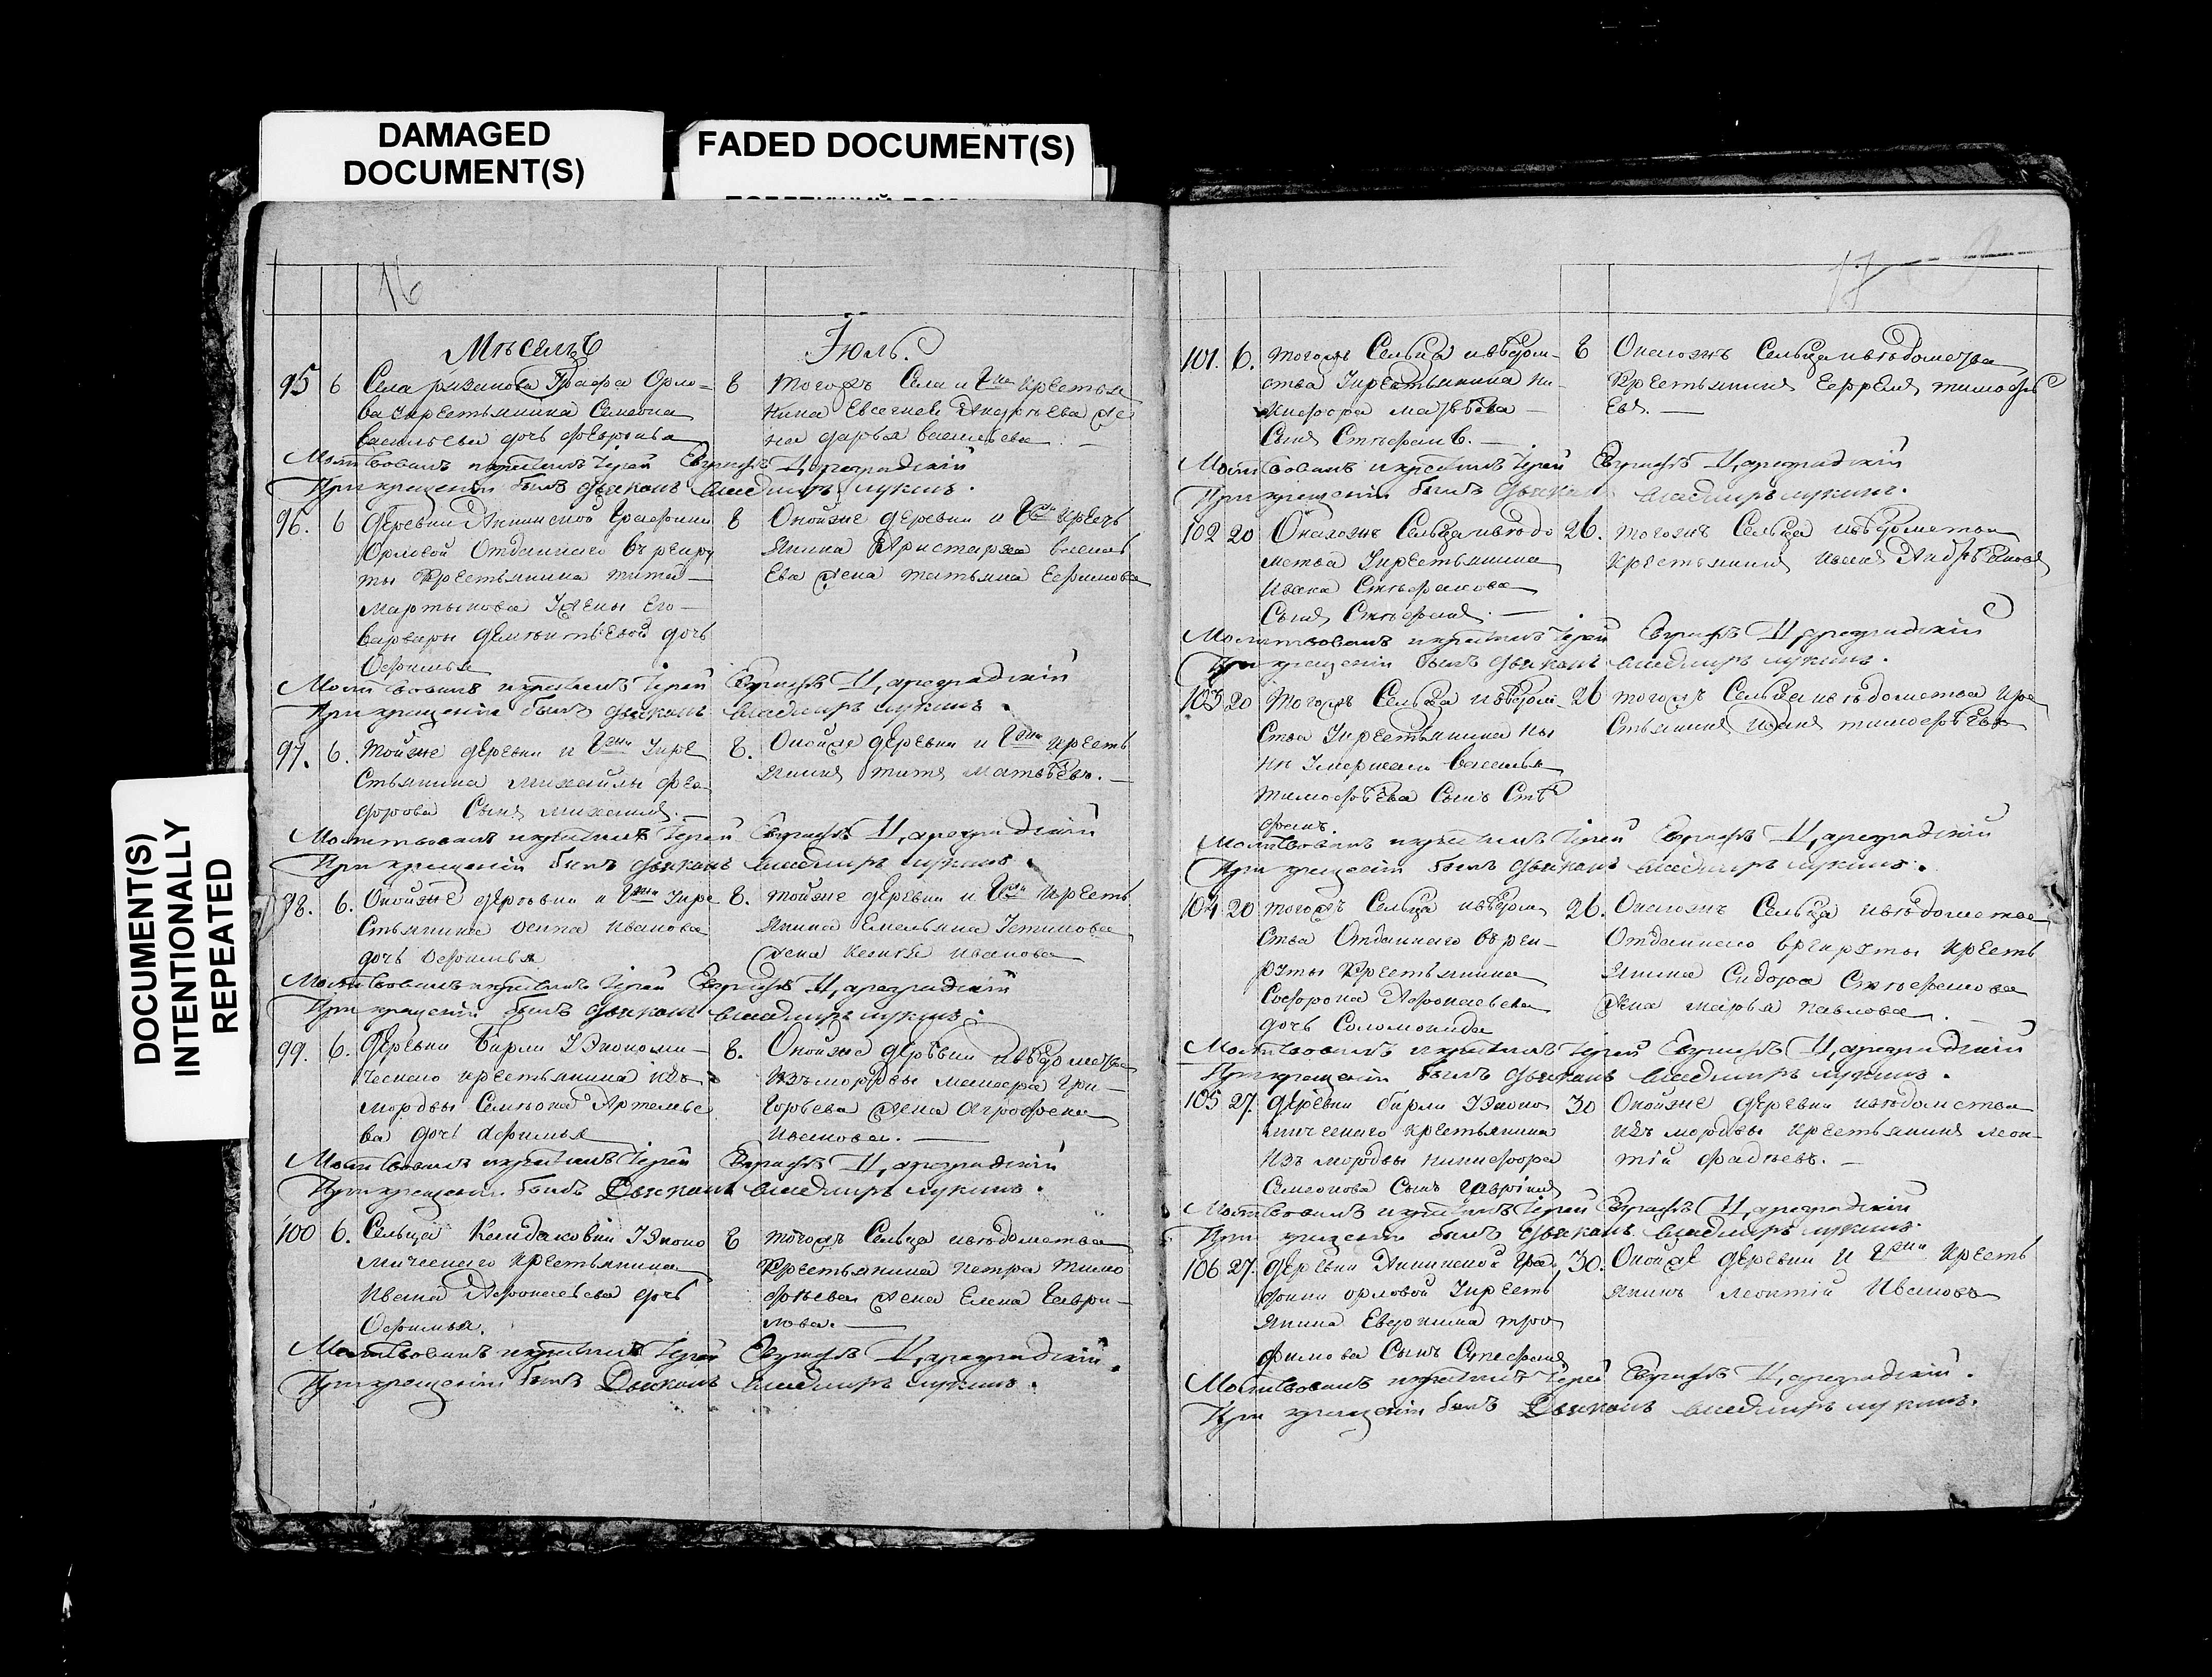 DAMAGED
DOCUMENT(S)
FADED DOCUMENT(S)
DOCUMENT(S)
INTENTIONALLY
REPEATED
16
Мѣсецъ Іюль.
95 6 Села рязанова Графа Орло-
ва Укрестьянина Семиона
васильева дочь Феврониа
8 Тогожъ Села и Гжи крестья
нина Евсегнея Андрѣева же
на дарья васильева
Молитвовалъ икрестилъ Іерей Евграфъ Цареградскій
При крещеніи былъ дьяконъ владимиръ лукинъ.
96. 6 деревни Аннинской Графини
Орловой Отданнаго въ рекру
ты Крестьянина тита
Мартынова Жены Его
варвары дементьевой дочь
Офимья
8 Оной же деревни и Гжи крестъ
янина Аристарха василь
ева жена татьяна Ефимова
Молитвовалъ икрестилъ Іерей Евграфъ Цареградскій
При крещеніи былъ дьяконъ владимиръ лукинъ.
97. 6. тойже деревни и Гжи Укре
стьянина михайлы фео
дорова Сынъ михаилъ.
8. Онойже деревни и Гжи кресть
янинъ титъ матвѣевъ.
Молитвовалъ икрестилъ Іерей Евграфъ Цареградскій
При крещеніи былъ дьяконъ владимиръ лукинъ.
98. 6. Онойже деревни и Гжи Укре
стьянина осипа иванова
дочь Офимья
8. тойже деревни и Гжи кресть
янина Емельяна Устинова
жена иванова
Молитвовалъ икрестилъ Іерей Евграфъ Цареградскій
При крещеніи былъ дьяконъ владимиръ лукинъ.
99. 6. деревни бирли УЭкономи-
ческаго крестьянина изъ
мордвы Семиона Артемье
ва дочь Афимья
8. Онойже деревни ивѣдомства
Изъмордвы Гри-
горьева жена агрофена
иванова.
Молитвовалъ икрестилъ Іерей Евграфъ Цареградскій
При крещеніи былъ Дьяконъ владимиръ лукинъ.
100 6. Сельца Кандаковки УЭконо
мическаго крестьянина
ивана Афонасьева дочь
Офимья.
8 тогожъ Сельца ивѣдомства
Крестьянина петра тимо
фѣева жена Елена Гаври-
лова.
Молитвовалъ икрестилъ Іерей Евграфъ Цареградскій.
При крещеніи былъ Дьяконъ владимиръ лукинъ.
17
101. 6. тогожъ Сельца ивѣдом-
ства Укрестьянина ни-
кифора матвѣева
Сынъ Стефанъ.
8 Онагожъ Сельца ивѣдомства
Крестьянинъ Ефремъ тимофѣ
евъ.
Молитвовалъ икрестилъ Іерей Евграфъ Цареградскій
При крещеніи былъ дьяконъ владимиръ лукинъ.
102 20 Онагожъ Сельца ивѣдо
мства Укрестьянина
ивана Стефанова
Сынъ Стефанъ.
26. тогожъ Сельца ивѣдомства
крестьянинъ иванъ Андрѣяновъ
Молитвовалъ икрестилъ Іерей Евграфъ Цареградскій
При крещеніи былъ дьяконъ владимиръ лукинъ.
103 20 тогожъ Сельца ивѣдом-
ства Укрестьянина ны
нѣ Умершаго василья
тимофѣева Сынъ Сте
фанъ.
26 тогожъ Сельца ивѣдомства кре
стьянинъ иванъ тимофѣевъ
Молитвовалъ икрестилъ Іерей Евграфъ Цареградскій
При крещеніи былъ дьяконъ владимиръ лукинъ.
104. 20 тогожъ Сельца ивѣдом
ства Отданнаго въ рек-
руты Крестьянина
Софрона Афонасьева
дочь Соломонида
26. Онагожъ Сельца ивѣдомства
Отданнаго врекруты кресть
янина Сидора Стефанова
жена марья павлова.
Молитвовалъ икрестилъ Іерей Евграфъ Цареградскій
При крещеніи былъ дьяконъ владимиръ лукинъ.
105 27. деревни бирли УЭконо
мическаго крестьянина
изъ мордвы никифора
Семионова Сынъ Гавріилъ
30 Онойже деревни ивѣдомства
изъ мордвы крестьянинъ леон-
тій фадѣевъ.
Молитвовалъ икрестилъ Іерей Евграфъ Цареградскій
При крещеніи былъ дьяконъ владимиръ лукинъ.
106 27. деревни Аннинской Гра
фини орловой Укресть
янина Евдокима тро
фимова Сынъ Стефанъ
30. Онойже деревни и Гжи кресть
янинъ леонтій Ивановъ
Молитвовалъ икрестилъ Іерей Евграфъ Цареградскій.
При крещеніи былъ Дьяконъ владимиръ лукинъ.